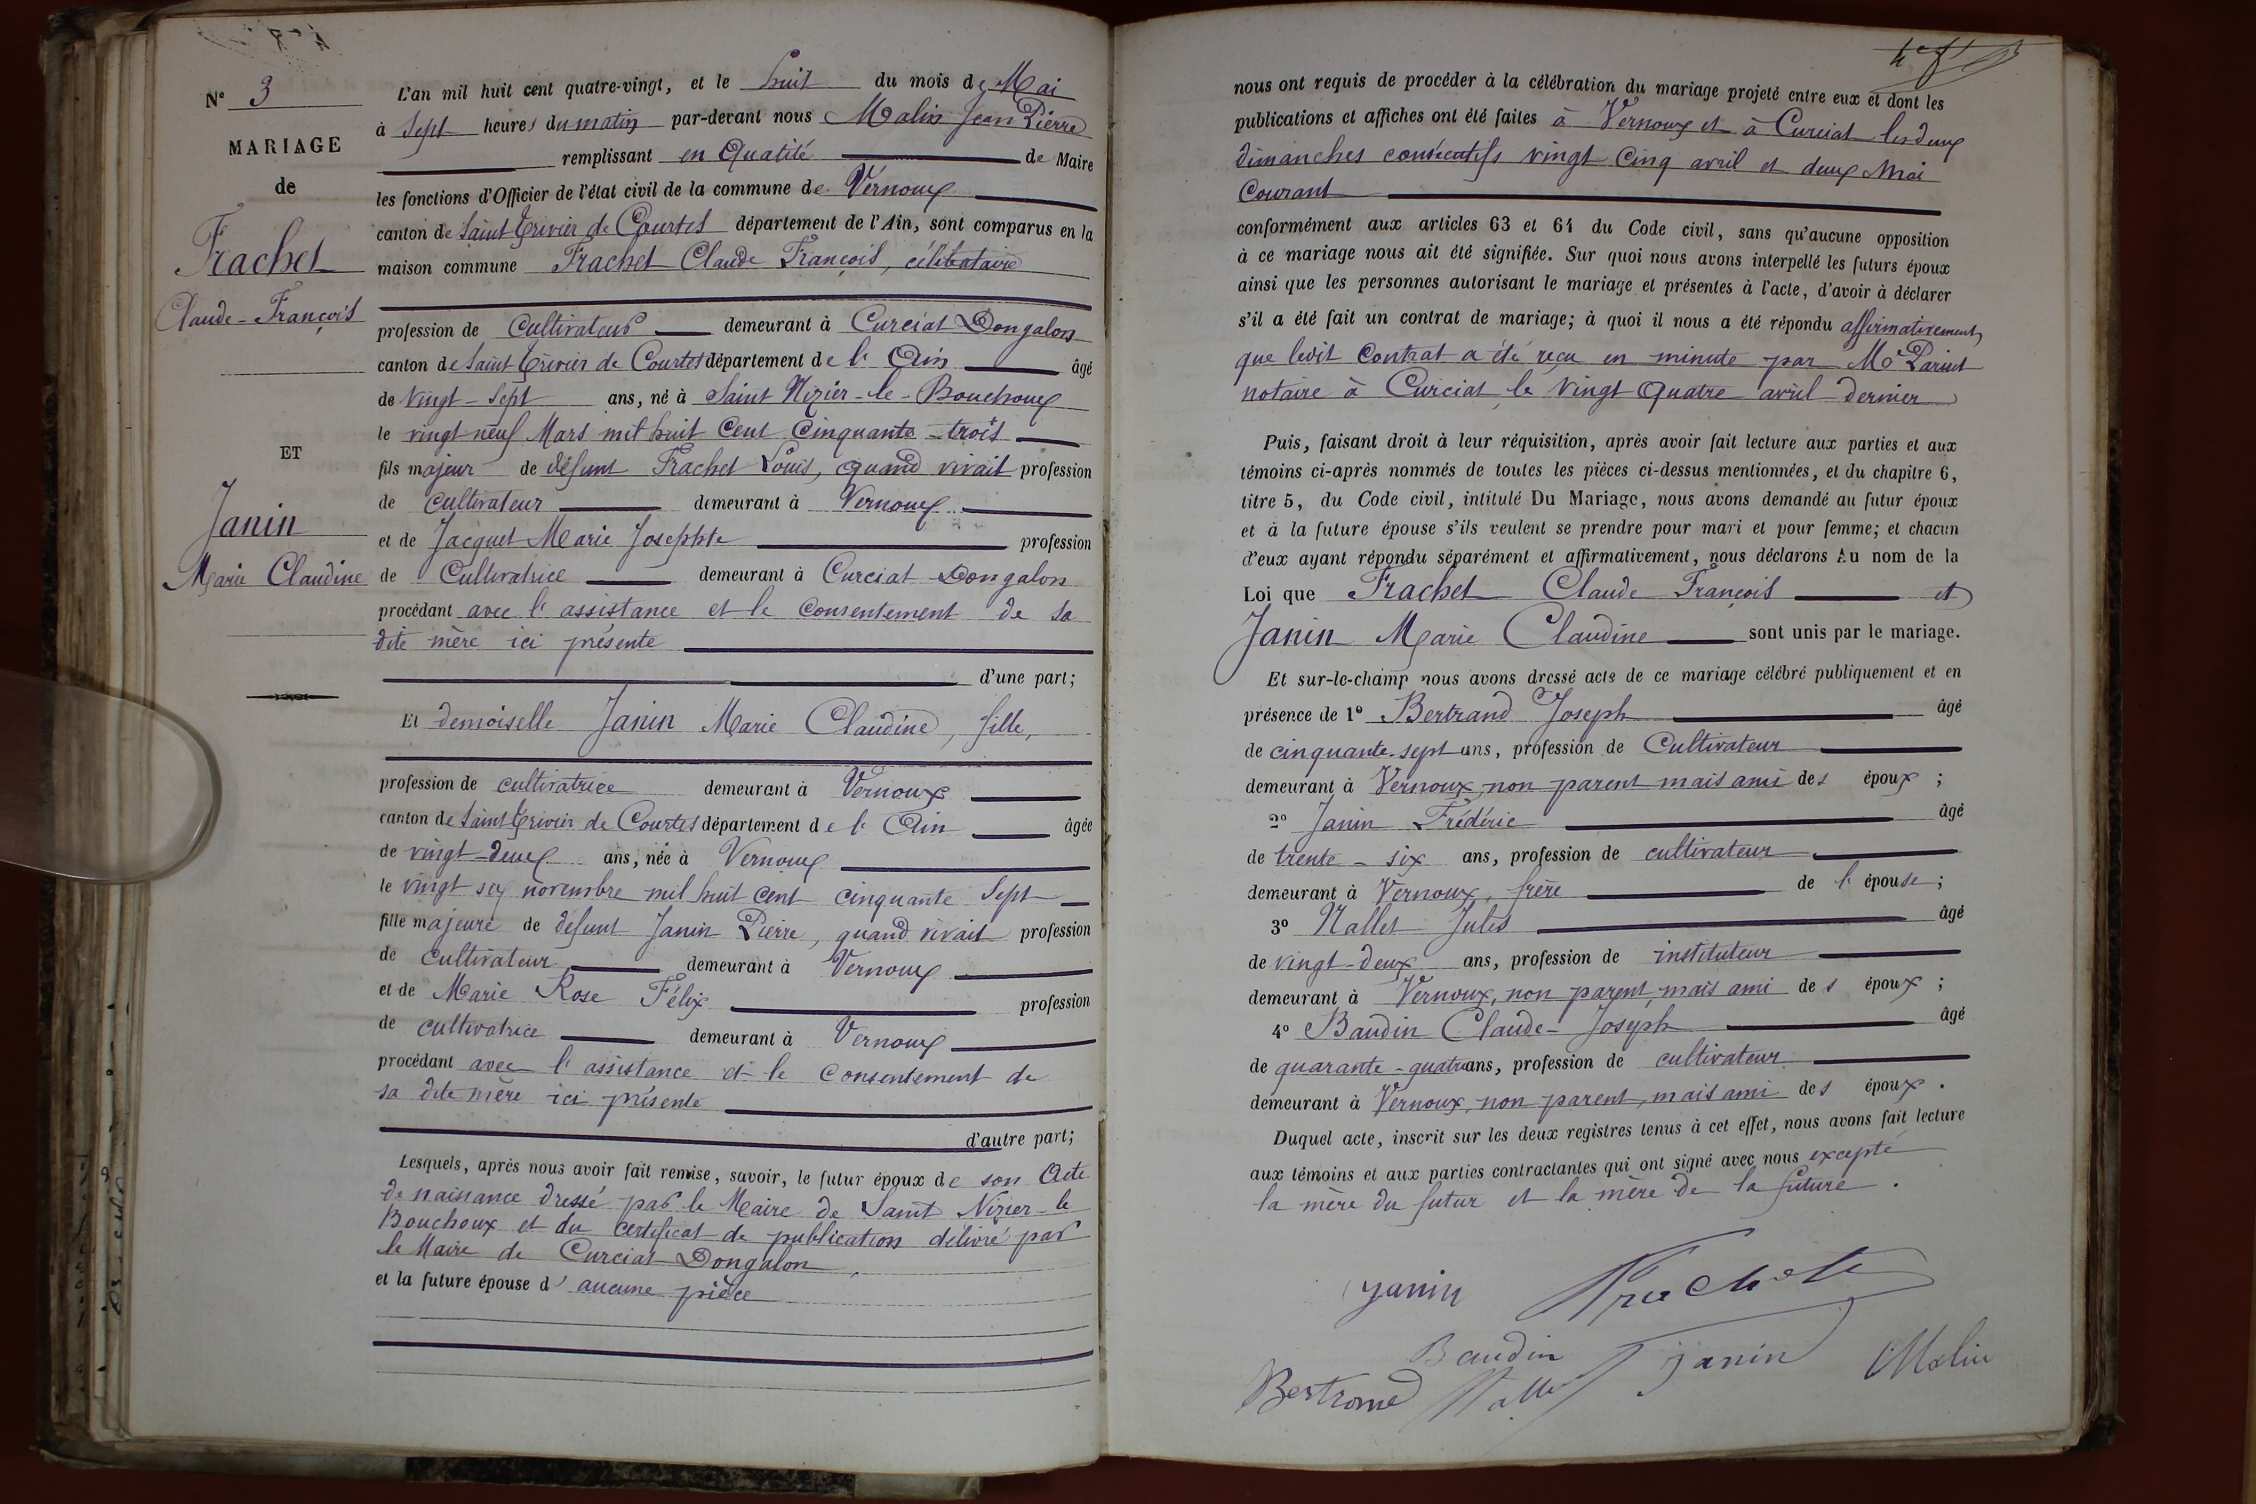 N° 3
MARIAGE
de
Frachet
Claude-François
ET
Janin
Marie Claudine
L'an mil huit cent quatre-vingt, et le huit du mois de Mai
à sept heures du matin par-devant nous Malin Jean Pierre
remplissant en qualité de Maire
les fonctions d'Officier de l'état civil de la commune de Vernoux
canton de Saint Trivier de Courtes département de l'Ain, sont comparus en la
maison commune Frachet Claude François, célibataire
profession de Cultivateur demeurant à Curciat Dongalon
canton de Saint Trivier de Courtes département de l'Ain âgé
de vingt-sept ans, né à Saint Nizier-le-Bouchoux
le vingt neuf Mars mil huit Cent Cinquante-trois
fils majeur de défunt Frachet Louis, quand vivait profession
de cultivateur demeurant à Vernoux
et de Jacquet Marie Josephte profession
de Cultivatrice demeurant à Curciat-Dongalon
procédant avec l'assistance et le Consentement de sa
dite mère ici présente
d'une part;
Et demoiselle Janin Marie Claudine, fille,
profession de cultivatrice demeurant à Vernoux
canton de Saint Trivier de Courtes département de l'Ain âgée
de vingt-deux ans, née à Vernoux
le vingt six novembre mil huit cent cinquante sept
fille majeure de défunt Janin Pierre, quand vivait profession
de cultivateur demeurant à Vernoux
et de Marie Rose Félix profession
de cultivatrice demeurant à Vernoux
procédant avec l'assistance et le Consentement de
sa dite mère ici présente
d'autre part;
Lesquels, après nous avoir fait remise, savoir, le futur époux de son Acte
de naissance dressé par le Maire de Saint Nizier-le
Bouchoux et du certificat de publication délivré par
le Maire de Curciat-Dongalon,
et la future épouse d'aucune pièce
nous ont requis de procéder à la célébration du mariage projeté entre eux et dont les
publications et affiches ont été faites à Vernoux et à Curciat les deux
dimanches consécutifs vingt cinq avril et deux Mai
Courant
conformément aux articles 63 et 64 du Code civil, sans qu'aucune opposition
à ce mariage nous ait été signifiée. Sur quoi nous avons interpellé les futurs époux
ainsi que les personnes autorisant le mariage et présentes à l'acte, d'avoir à déclarer
s'il a été fait un contrat de mariage; à quoi il nous a été répondu affirmativement,
que ledit Contrat a été reçu en minute par Me
notaire à Curciat, le vingt quatre avril dernier
Puis, faisant droit à leur réquisition, après avoir fait lecture aux parties et aux
témoins ci-après nommés de toutes les pièces ci-dessus mentionnées, et du chapitre 6,
titre 5, du Code civil, intitulé Du Mariage, nous avons demandé au futur époux
et à la future épouse s'ils veulent se prendre pour mari et pour femme; et chacun
d'eux ayant répondu séparément et affirmativement, nous déclarons Au nom de la
Loi que Frachet Claude François et
Janin Marie Claudine sont unis par le mariage.
Et sur-le-champ nous avons dressé acte de ce mariage célébré publiquement et en
présence de 1° Bertrand Joseph âgé
de cinquante-sept ans, profession de Cultivateur
demeurant à Vernoux, non parent mais ami des époux;
2° Janin Frédéric âgé
de trente-six ans, profession de cultivateur
demeurant à Vernoux, frère de l'épouse;
3° Nallet Jules âgé
de vingt-deux ans, profession de instituteur
demeurant à Vernoux, non parent, mais ami des époux;
4° Baudin Claude-Joseph âgé
de quarante-quatre ans, profession de cultivateur
demeurant à Vernoux, non parent, mais ami des époux.
Duquel acte, inscrit sur les deux registres tenus à cet effet, nous avons fait lecture
aux témoins et aux parties contractantes qui ont signé avec nous excepté
la mère du futur et la mère de la future.
Janin Frachet
Baudin Janin Malin
Bertrand Nallet